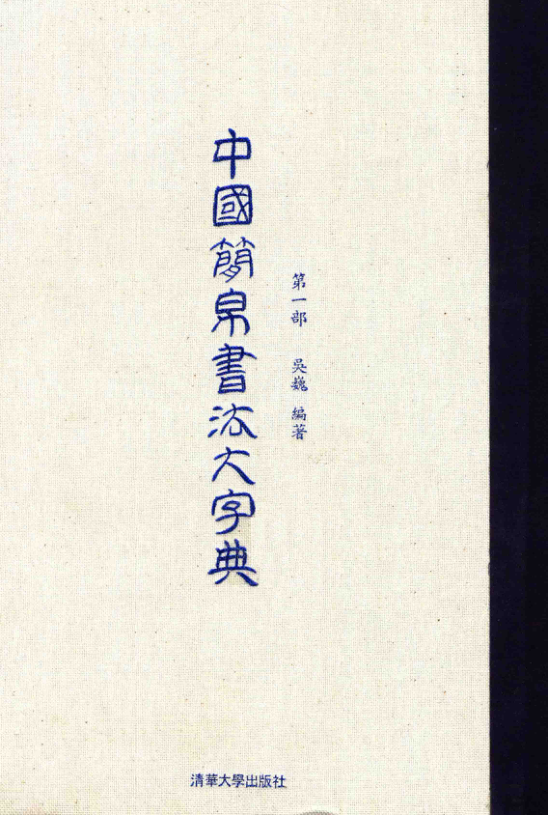 中國簡帛書法大字典
第一部 吳巍 編著
清華大學出版社